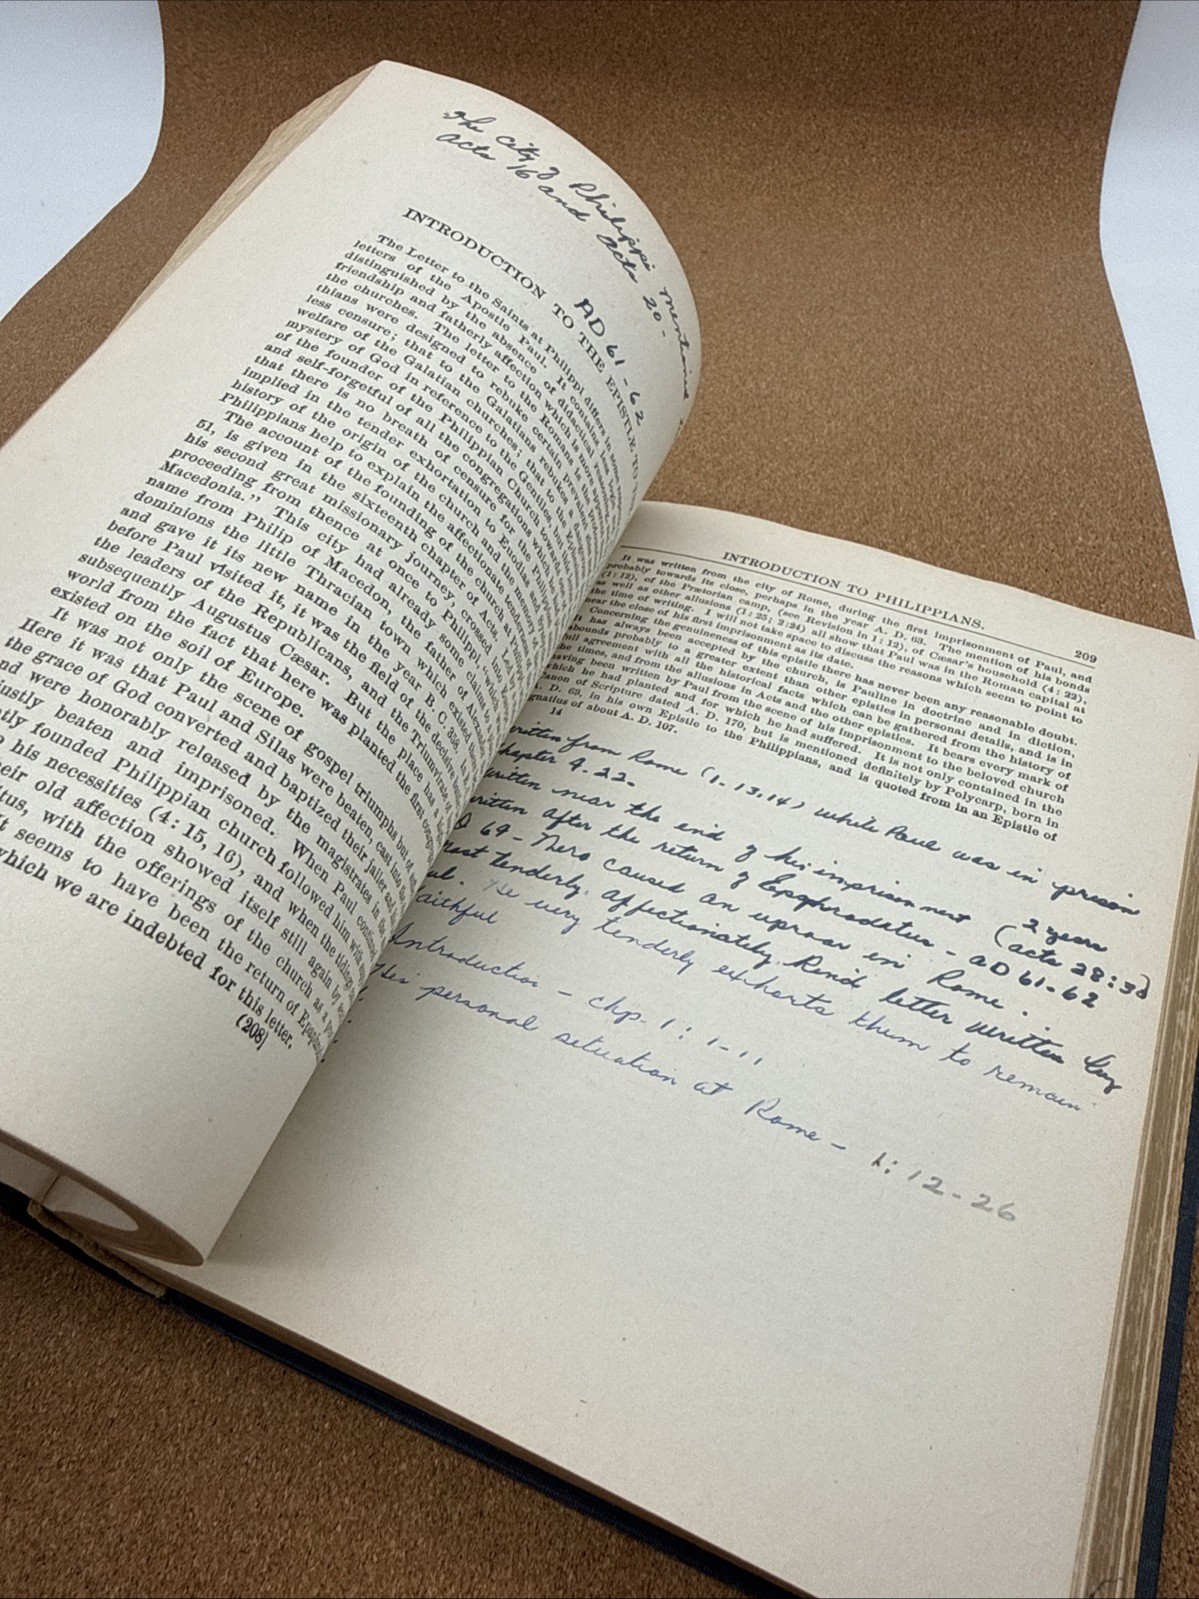 The City of Philippi mentioned
Acts 16 and Acts 20 -
AD 61-62
INTRODUCTION TO THE EPISTLE TO
The Letter to the Saints at Philippi differs in some
letters of the Apostle Paul. It contains less
distinguished by the absence of didactical
friendship and fatherly affection of which is more
the churches. The letter to the Romans is the
thians were designed to rebuke certain prevalent
less censure; that to the Galatians rebukes a
welfare of the Galatian churches; that to the
mystery of God in reference to the Gentiles, but
of the founder of the Philippian Church towards
and self-forgetful of all the congregations which
that there is no breath of censure for the
implied in the tender exhortation to Euodias and
history of the origin of the church and the memory of
Philippians help to explain the affectionate tenderness
The account of the founding of the church at
51, is given in the sixteenth chapter of Acts.
his second great missionary journey, crossed into
proceeding from thence at once to Philippi, "which
Macedonia." This city had already some claims to
name from Philip of Macedon, the father of
dominions the little Thracian town which existed
and gave it its new name in the year B. C. 358,
before Paul visited it, it was the field of the decisive
the leaders of the Republicans, and the
subsequently Augustus Cæsar. But the place has a
world from the fact that here was planted the first
existed on the soil of Europe.
It was not only the scene of gospel triumphs but of
Here it was that Paul and Silas were beaten, cast into
the grace of God converted and baptized their jailer and
were honorably released by the magistrates in the
beaten and imprisoned. When Paul
founded Philippian church followed him with
his necessities (4: 15, 16), and when the tidings
old affection showed itself still again by
with the offerings of the church as a
seems to have been the return of
which we are indebted for this letter.
(208)
INTRODUCTION TO PHILIPPIANS. 209
It was written from the city of Rome, during the first imprisonment of Paul, and
probably towards its close, perhaps in the year A. D. 63. The mention of his bonds
(1: 12), of the Prætorian camp, (see Revision in 1: 12), of Cæsar's household (4: 22),
as well as other allusions (1: 25; 2: 24) all show that Paul was in the Roman capital at
the time of writing. I will not take space to discuss the reasons which seem to point to
near the close of his first imprisonment as its date.
Concerning the genuineness of this epistle there has never been any reasonable doubt.
It has always been accepted by the church, is Pauline in doctrine and in diction,
abounds probably to a greater extent than other epistles in personal details, and is in
full agreement with all the historical facts which can be gathered from the history of
the times, and from the allusions in Acts and the other epistles. It bears every mark of
having been written by Paul from the scene of his imprisonment to the beloved church
which he had planted and for which he had suffered. It is not only contained in the
Canon of Scripture dated A. D. 170, but is mentioned definitely by Polycarp, born in
A. D. 69, in his own Epistle to the Philippians, and is quoted from in an Epistle of
Ignatius of about A. D. 107.
14
written from Rome (1-13.14) while Paul was in prison
chapter 4-22-
written near the end of his imprisonment 2 years (acts 28:30)
written after the return of Epaphroditus - AD 61-62
64 - Nero caused an uproar in Rome.
most tenderly, affectionately, kind letter written by
He very tenderly exhorts them to remain
faithful
Introduction - chp. 1: 1-11
His personal situation at Rome - 1: 12-26